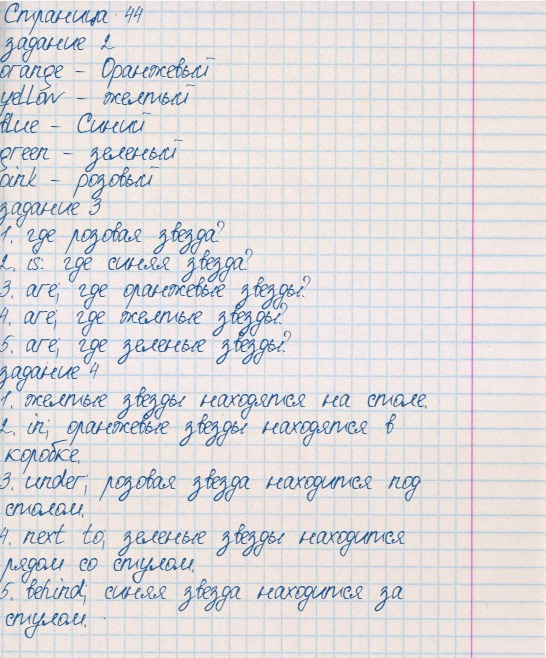 Страница 44
задание 2
orange – Оранжевый
yellow – желтый
blue – Синий
green – зеленый
pink – розовый
задание 3
1. где розовая звезда?
2. is: где синяя звезда?
3. are; где оранжевые звезды?
4. are; где желтые звезды?
5. are; где зеленые звезды?
задание 4
1. желтые звезды находятся на столе.
2. in; оранжевые звезды находятся в
коробке.
3. under; розовая звезда находится под
столом.
4. next to; зеленые звезды находится
рядом со стулом.
5. behind; синяя звезда находится за
стулом.